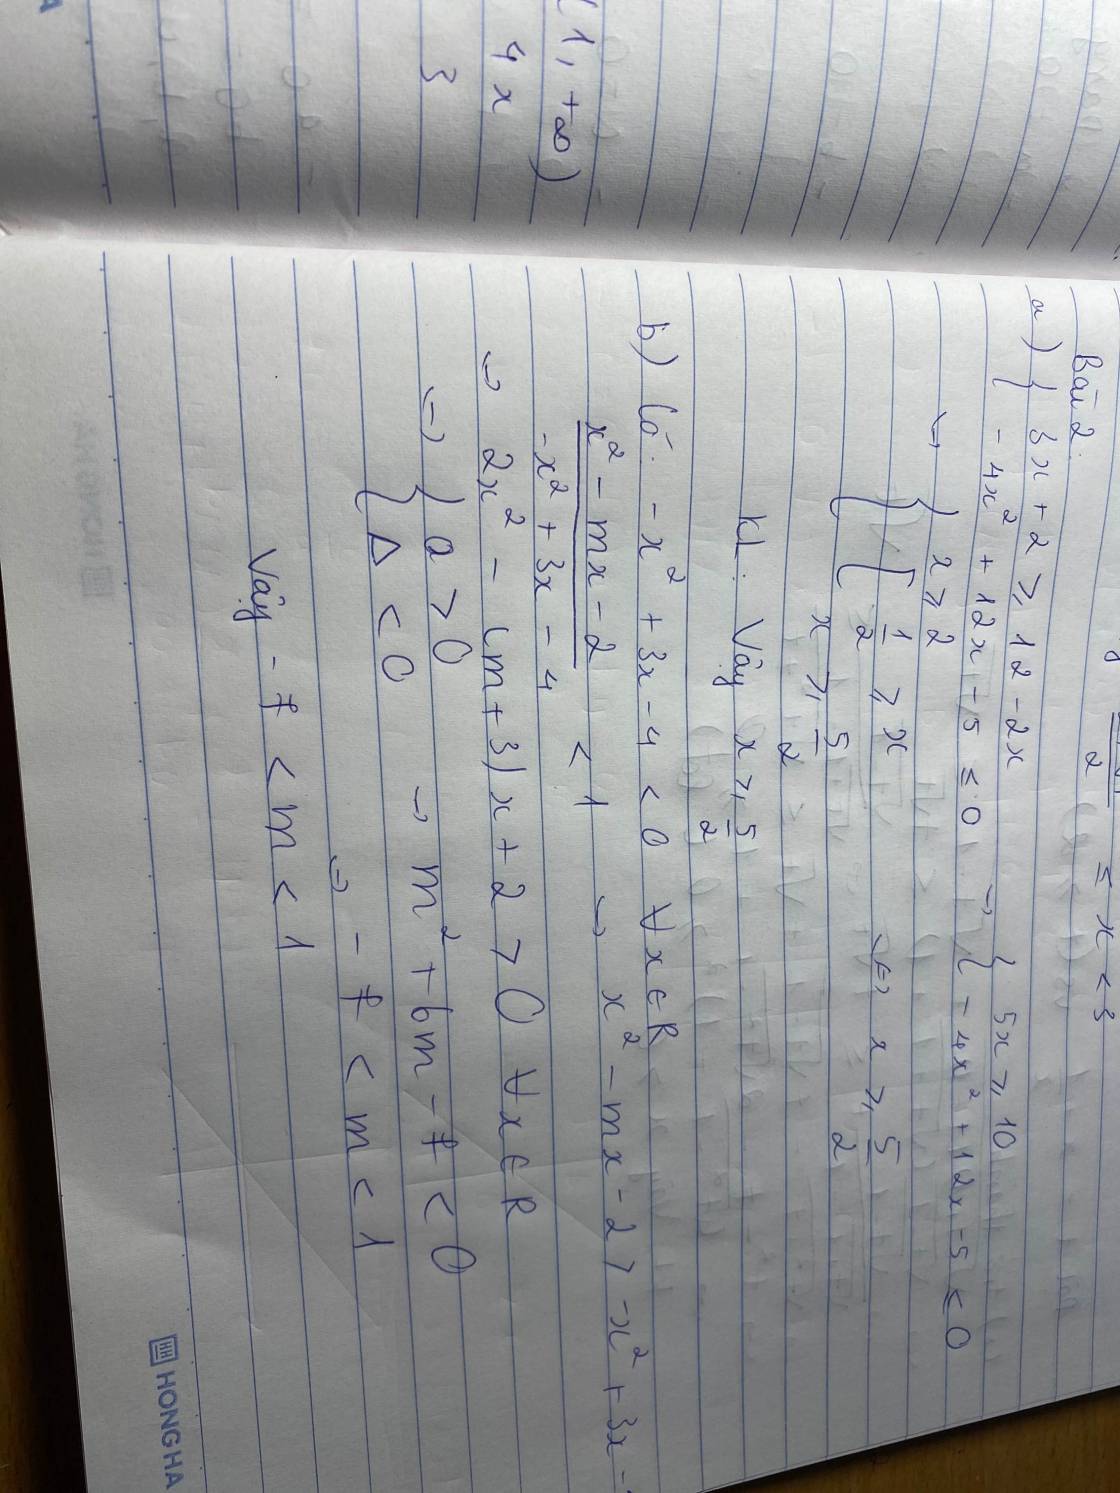 (1, +∞)
4x
3
≤ x < 3
2
Bài 2:
a) { 3x + 2 ≥ 12 - 2x
- 4x² + 12x - 5 ≤ 0 → { 5x ≥ 10
- 4x² + 12x - 5 ≤ 0
→ { x ≥ 2
{ [ 1/2 ≥ x
x ≥ 5/2
⇔ x ≥ 5/2
Kl: Vậy x ≥ 5/2
b) Có: - x² + 3x - 4 < 0 ∀x ∈ R
x² - mx - 2 / -x² + 3x - 4 < 1 → x² - mx - 2 > - x² + 3x -
→ 2x² - (m + 3)x + 2 > 0 ∀x ∈ R
→ { a > 0
Δ < 0 → m² + 6m - 7 < 0
→ - 7 < m < 1
Vậy - 7 < m < 1
HONG HA